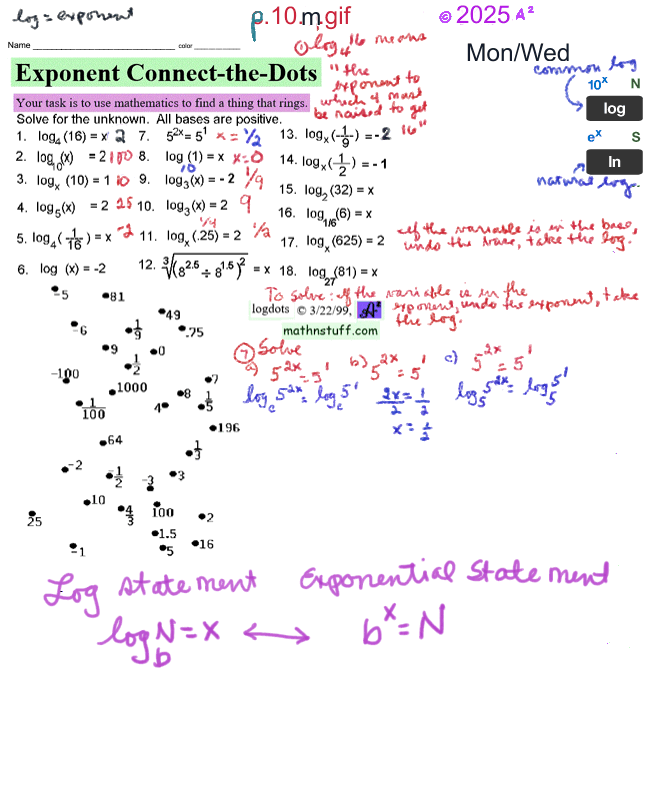 log = exponent
p.10.m.gif
© 2025 A²
Name color
① log₄16 means
"the
exponent to
which 4 must
be raised to get
16"
Mon/Wed
common log
10ˣ N
log
eˣ S
ln
natural log
Exponent Connect-the-Dots
Your task is to use mathematics to find a thing that rings.
Solve for the unknown. All bases are positive.
1. log₄(16) = x 2
2. log₁₀(x) = 2 100
3. logₓ (10) = 1 10
4. log₅(x) = 2 25
5. log₄(1/16) = x -2
6. log (x) = -2
7. 5²ˣ = 5¹ x = 1/2
8. log (1) = x x=0
10
9. log₃(x) = - 2 1/9
10. log₃(x) = 2 9
1/4
11. logₓ(.25) = 2 1/2
12. ∛(8^2.5 ÷ 8^1.5)² = x
13. logₓ(1/9) = -2
14. logₓ(1/2) = - 1
15. log₂(32) = x
16. log₁/₆(6) = x
17. logₓ(625) = 2
18. log₂₇(81) = x
if the variable is in the base,
undo the base, take the log.
To solve: if the variable is in the
exponent, undo the exponent, take
the log.
logdots © 3/22/99, A²
mathnstuff.com
⑦ Solve
a) 5²ˣ = 5¹
log_c 5²ˣ = log_c 5¹
b) 5²ˣ = 5¹
2x/2 = 1/2
x = 1/2
c) 5²ˣ = 5¹
log₅ 5²ˣ = log₅ 5¹
-5
81
49
-6
1/9
.75
9
0
1/2
-100
7
1000
8
1/100
4
1/5
196
64
1/3
-2
-1/2
-3
3
10
4/3
100
25
2
1.5
-1
5
16
Log statement Exponential Statement
log_b N = x ⟷ bˣ = N